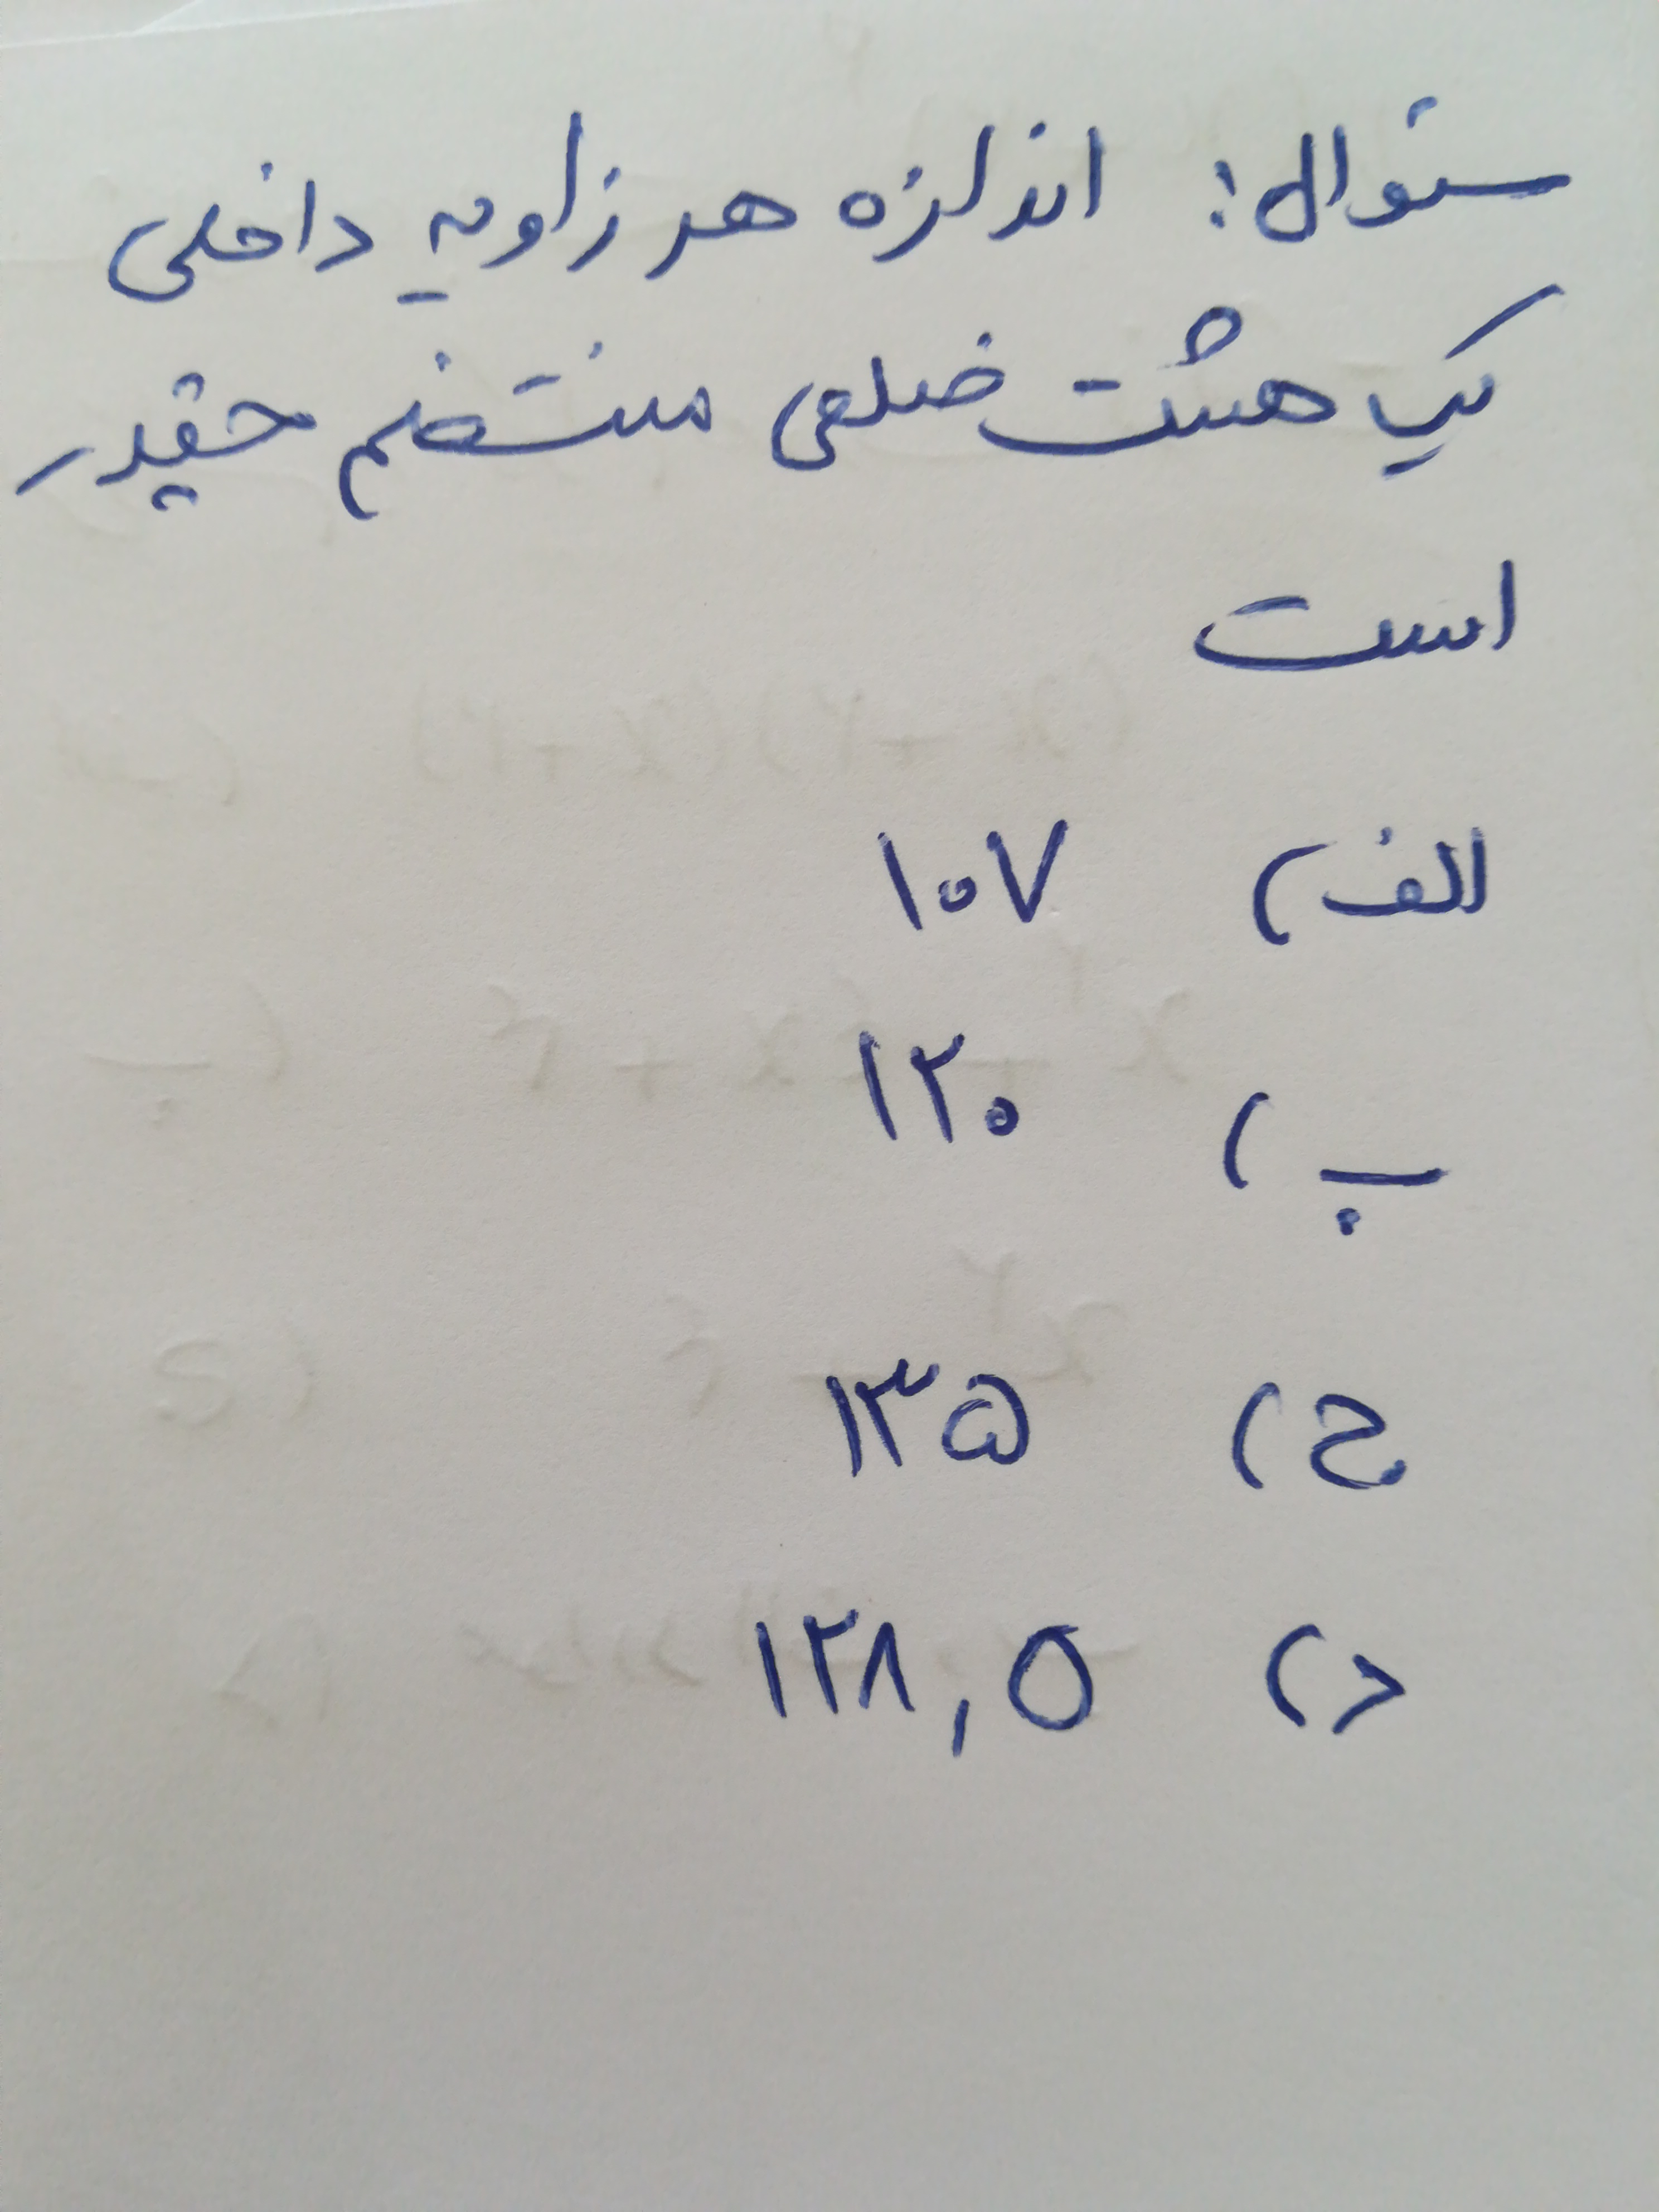 سئوال: اندازه هر زاویه داخلی
یک هشت ضلعی منتظم چقدر
است
الف) ۱۰۷
ب) ۱۲۰
ج) ۱۳۵
د) ۱۲۸,۵